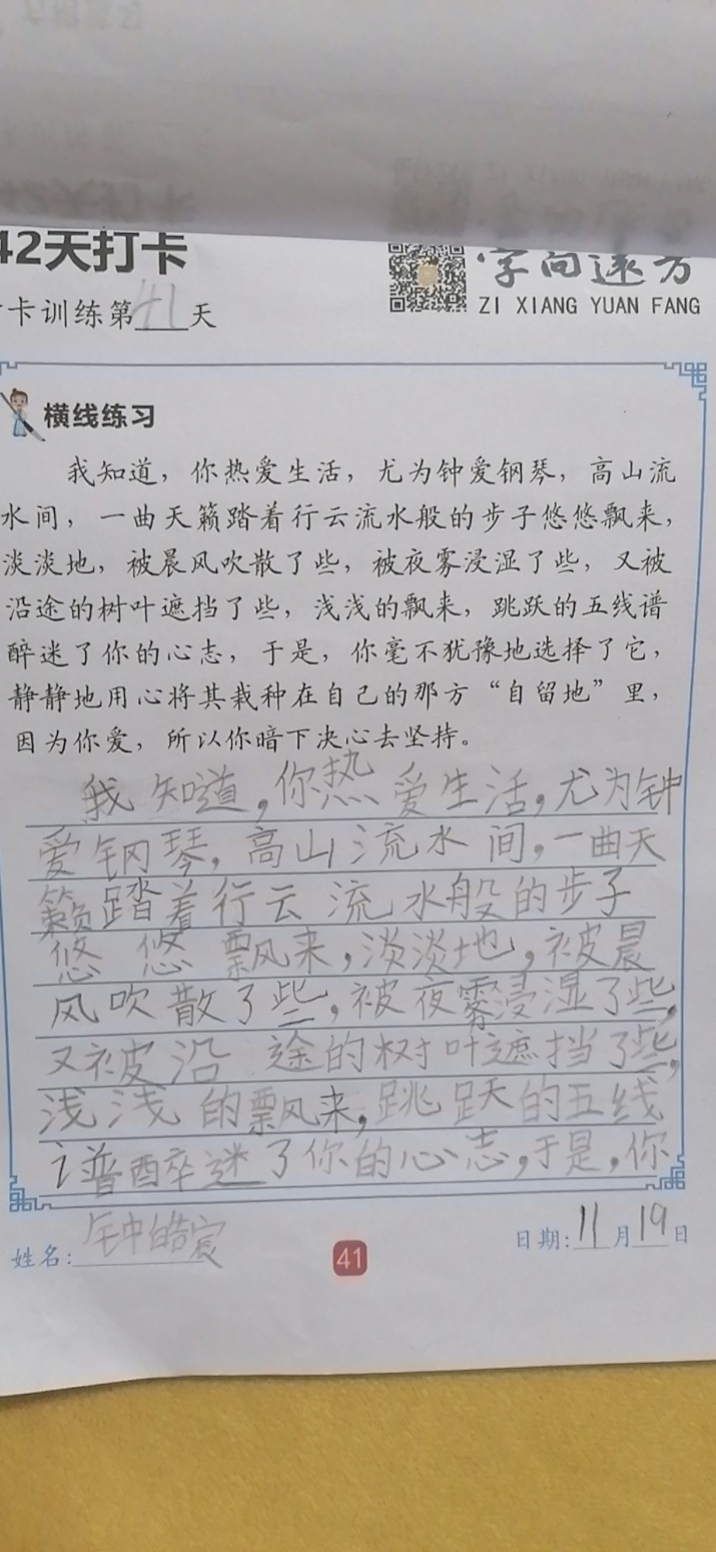 42天打卡
字向远方
卡训练第41天
ZI XIANG YUAN FANG
横线练习
我知道，你热爱生活，尤为钟爱钢琴，高山流
水间，一曲天籁踏着行云流水般的步子悠悠飘来，
淡淡地，被晨风吹散了些，被夜雾浸湿了些，又被
沿途的树叶遮挡了些，浅浅的飘来，跳跃的五线谱
醉迷了你的心志，于是，你毫不犹豫地选择了它，
静静地用心将其栽种在自己的那方“自留地”里，
因为你爱，所以你暗下决心去坚持。
我知道，你热爱生活，尤为钟
爱钢琴，高山流水间，一曲天
籁踏着行云流水般的步子
悠悠飘来，淡淡地，被晨
风吹散了些，被夜雾浸湿了些，
又被沿途的树叶遮挡了些，
浅浅的飘来，跳跃的五线
谱醉迷了你的心志，于是，你
姓名：钟皓宸
41
日期：11月19日